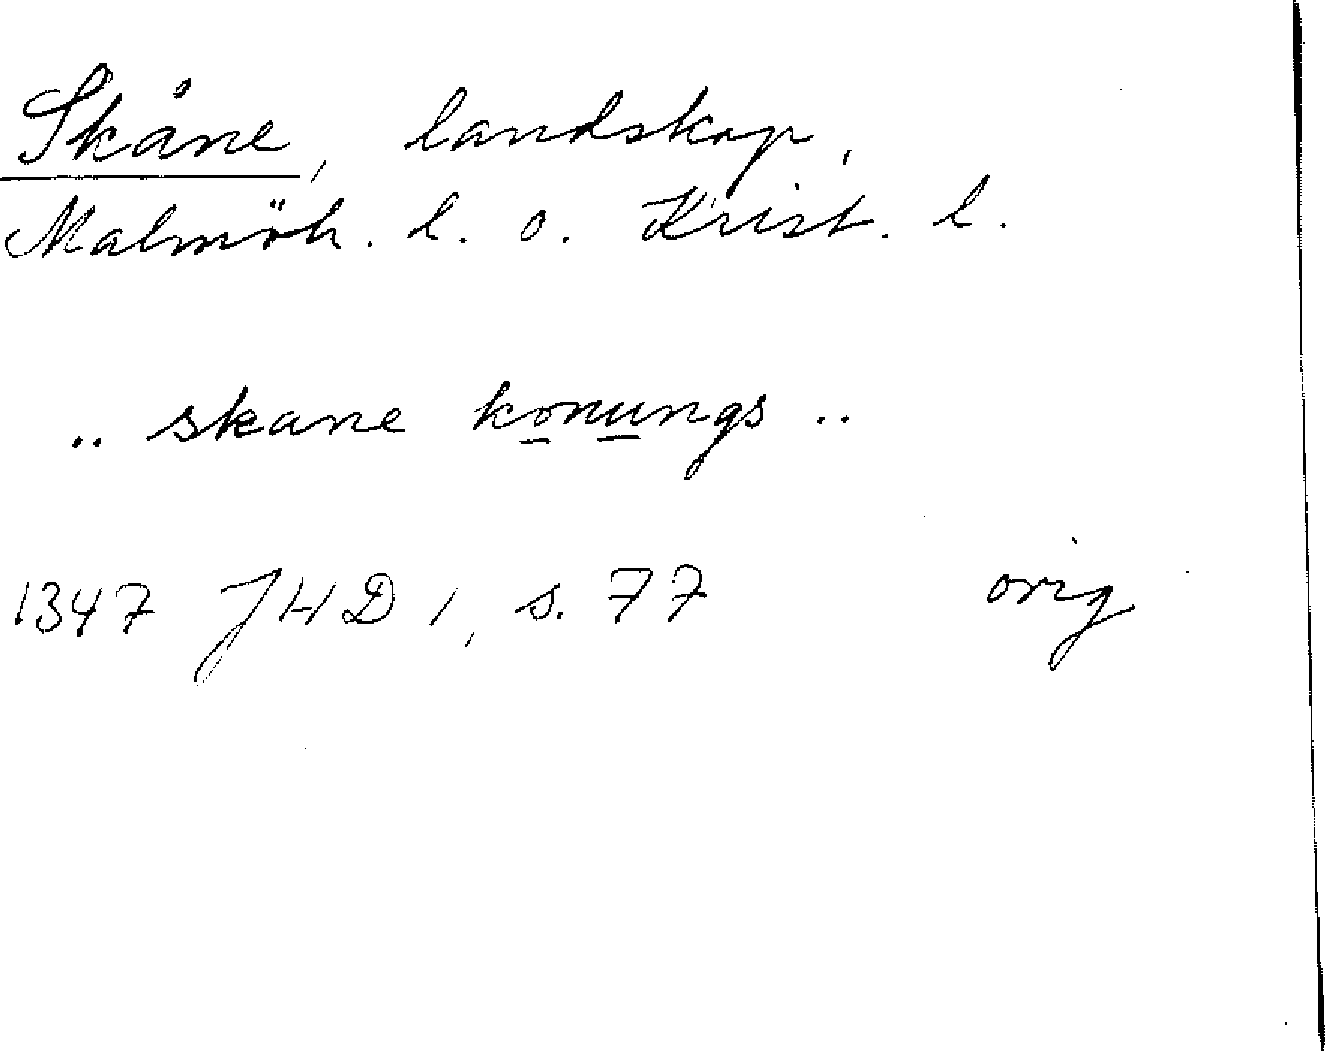 Skåne, landskap,
Malmöh. l. o. Krist. l.
.. skane konungs ..
1347 JHD 1, s. 77 orig